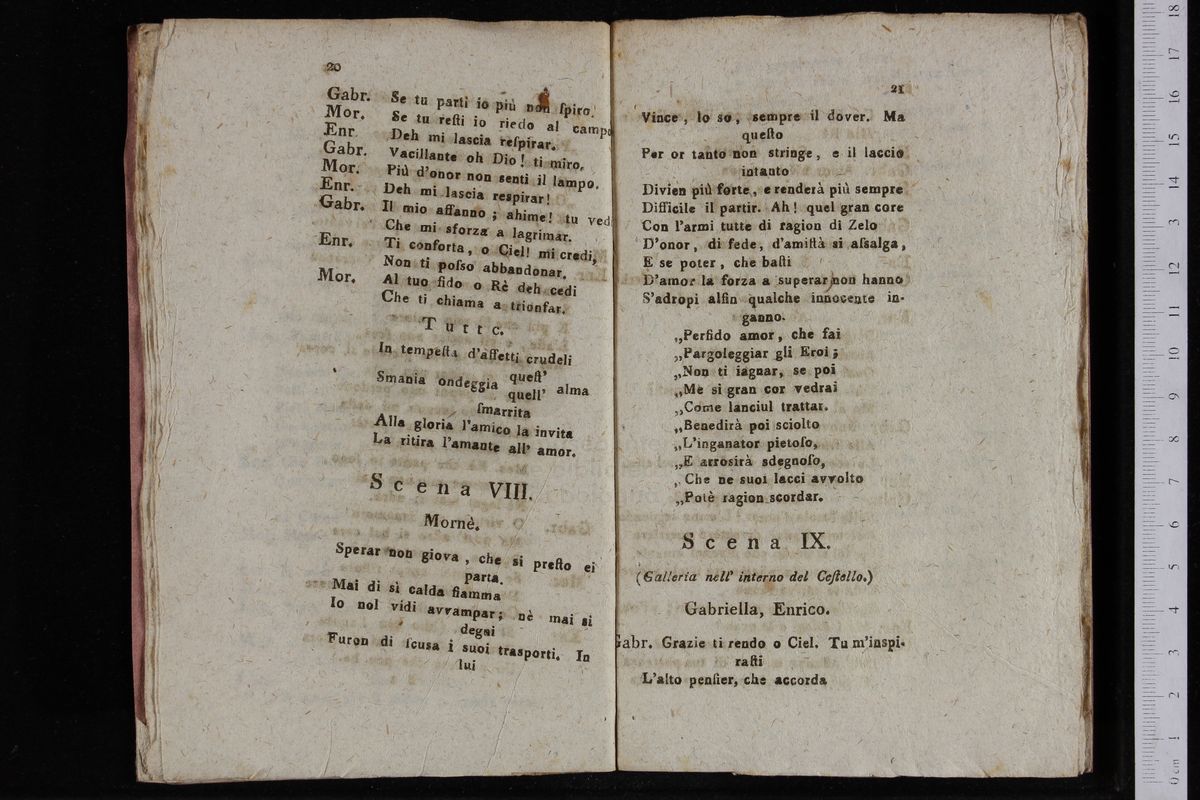 20
Gabr. Se tu parti io più non ſpiro.
Mor. Se tu reſti io riedo al campo
Enr. Deh mi lascia reſpirar.
Gabr. Vacillante oh Dio! ti miro.
Mor. Più d'onor non senti il lampo.
Enr. Deh mi lascia respirar!
Gabr. Il mio affanno; ahime! tu ved
Che mi sforza a lagrimar.
Enr. Ti conforta, o Ciel! mi credi,
Non ti poſso abbandonar.
Mor. Al tuo fido o Rè deh cedi
Che ti chiama a trionfar.
Tutte.
In tempeſta d'affetti crudeli
Smania ondeggia queſt' alma
quell'
ſmarrita
Alla gloria l'amico la invita
La ritira l'amante all' amor.
Scena VIII.
Mornè.
Sperar non giova, che si preſto ei
parta.
Mai di sì calda fiamma
Io nol vidi avvampar; nè mai si
degni
Furon di ſcusa i suoi trasporti. In
lui
21
Vince, lo so, sempre il dover. Ma
queſto
Per or tanto non stringe, e il laccio
intanto
Divien più forte, e renderà più sempre
Difficile il partir. Ah! quel gran core
Con l'armi tutte di ragion di Zelo
D'onor, di fede, d'amiſtà si aſsalga,
E se poter, che baſti
D'amor la forza a superar non hanno
S'adropi alfin qualche innocente in-
ganno.
„Perfido amor, che fai
„Pargoleggiar gli Eroi;
„Non ti lagnar, se poi
„Me si gran cor vedrai
„Come lanciul trattar.
„Benedirà poi sciolto
„L'inganator pietoſo,
„E arrosirà sdegnoſo,
„Che ne suoi lacci avvolto
„Potè ragion scordar.
Scena IX.
(Galleria nell' interno del Caſtello.)
Gabriella, Enrico.
Gabr. Grazie ti rendo o Ciel. Tu m'inspi-
raſti
L'alto penſier, che accorda